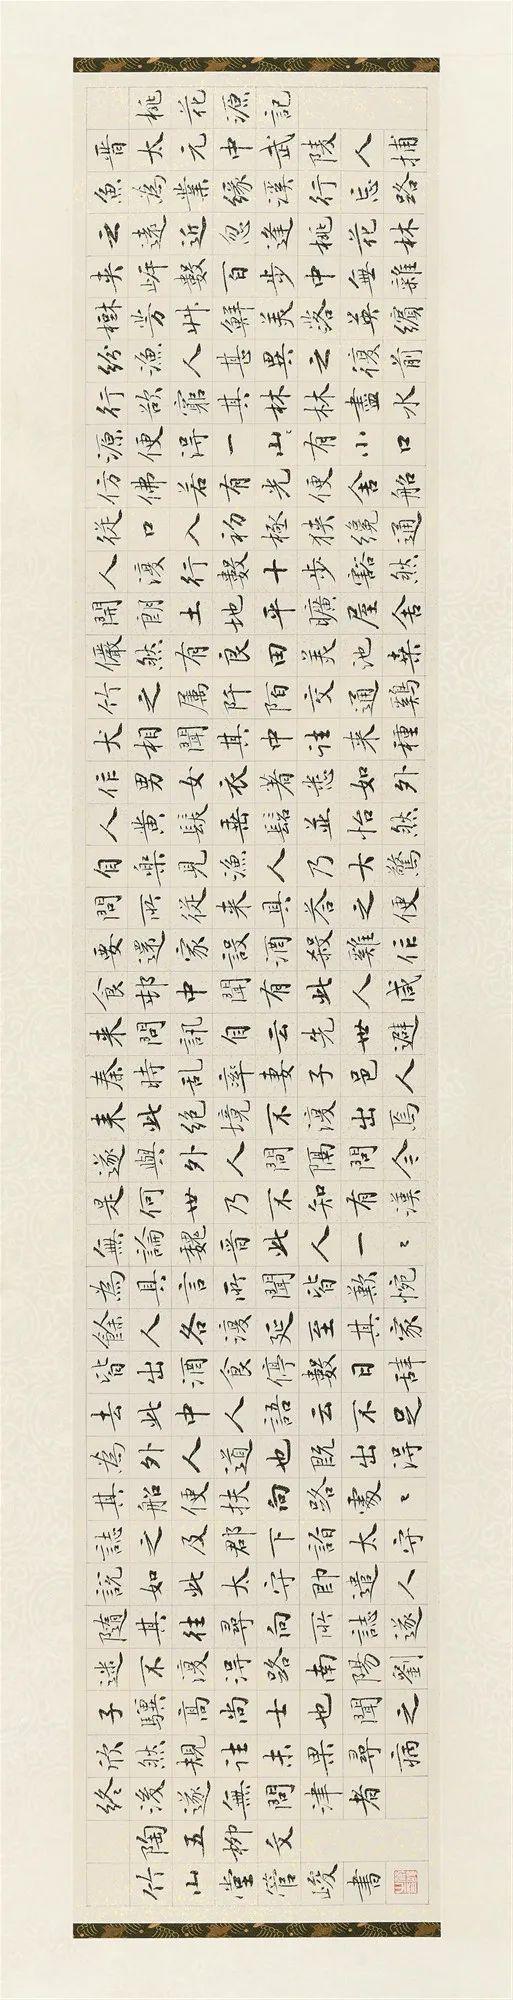 桃花源記
晋太元中武陵人捕
魚為業緣溪行忘路
之遠近忽逢桃花林
夾岸數百步中無雜
樹芳艸鮮美落英繽
紛漁人甚異之復前
行欲窮其林林盡水
源便得一山〻有小口
仿佛若有光便舍船
從口入初極狹纔通
人復行數十步豁然
開朗土地平曠屋舍
儼然有良田美池桑
竹之属阡陌交通鷄
犬相聞其中往來種
作男女衣著悉如外
人黄髮垂髫並怡然
自樂見漁人乃大驚
問所從來具答之便
要還家設酒殺雞作
食邨中聞有此人咸
來問訊自云先世避
秦時乱率妻子邑人
來此絶境不復出焉
遂與外人間隔問今
是何世乃不知有漢
無論魏晋此人一〻
為具言所聞皆歎惋
餘人各復延至其家
皆出酒食停數日辞
去此中人語云不足
為外人道也既出得
其船便扶向路處〻
誌之及郡下詣太守
說如此太守即遣人
隨其往尋向所誌遂
迷不復得路南陽劉
子驥高尚士也聞之
欣然規往未果尋病
終後遂無問津者
陶五柳文
竹山堂管峻書